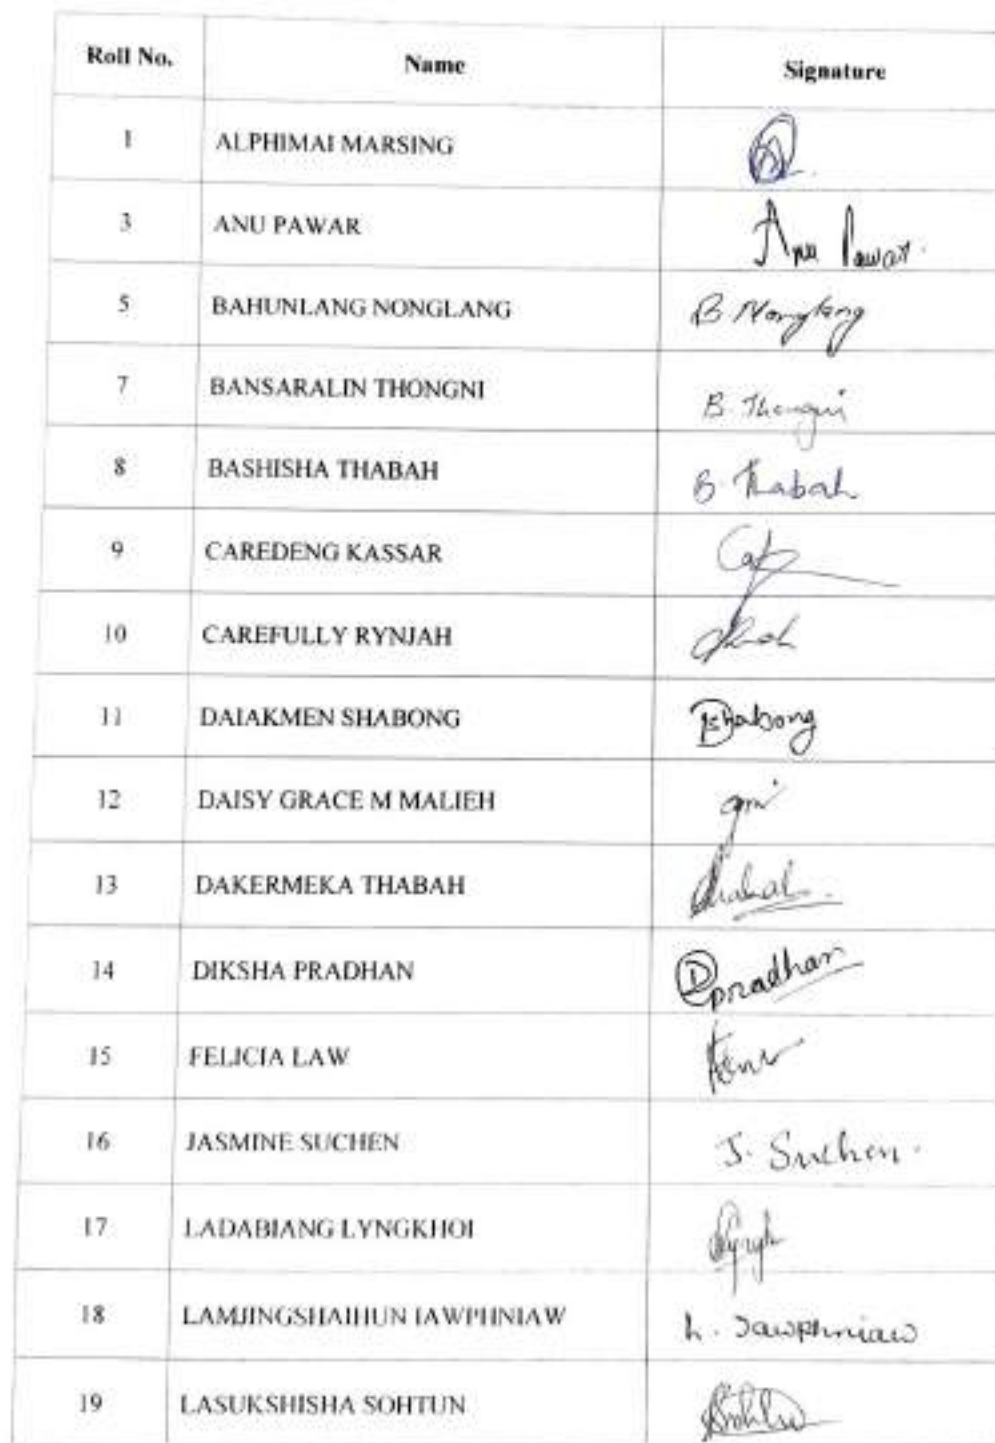 Roll No. Name Signature
1 ALPHIMAI MARSING
3 ANU PAWAR Anu Pawar.
5 BAHUNLANG NONGLANG B Nonglang
7 BANSARALIN THONGNI B. Thongni
8 BASHISHA THABAH B. Thabah
9 CAREDENG KASSAR
10 CAREFULLY RYNJAH
11 DAIAKMEN SHABONG Dshabong
12 DAISY GRACE M MALIEH
13 DAKERMEKA THABAH
14 DIKSHA PRADHAN Dpradhan
15 FELICIA LAW
16 JASMINE SUCHEN J. Suchen.
17 LADABIANG LYNGKHOI
18 LAMJINGSHAIHUN IAWPHNIAW L. Iawphniaw
19 LASUKSHISHA SOHTUN